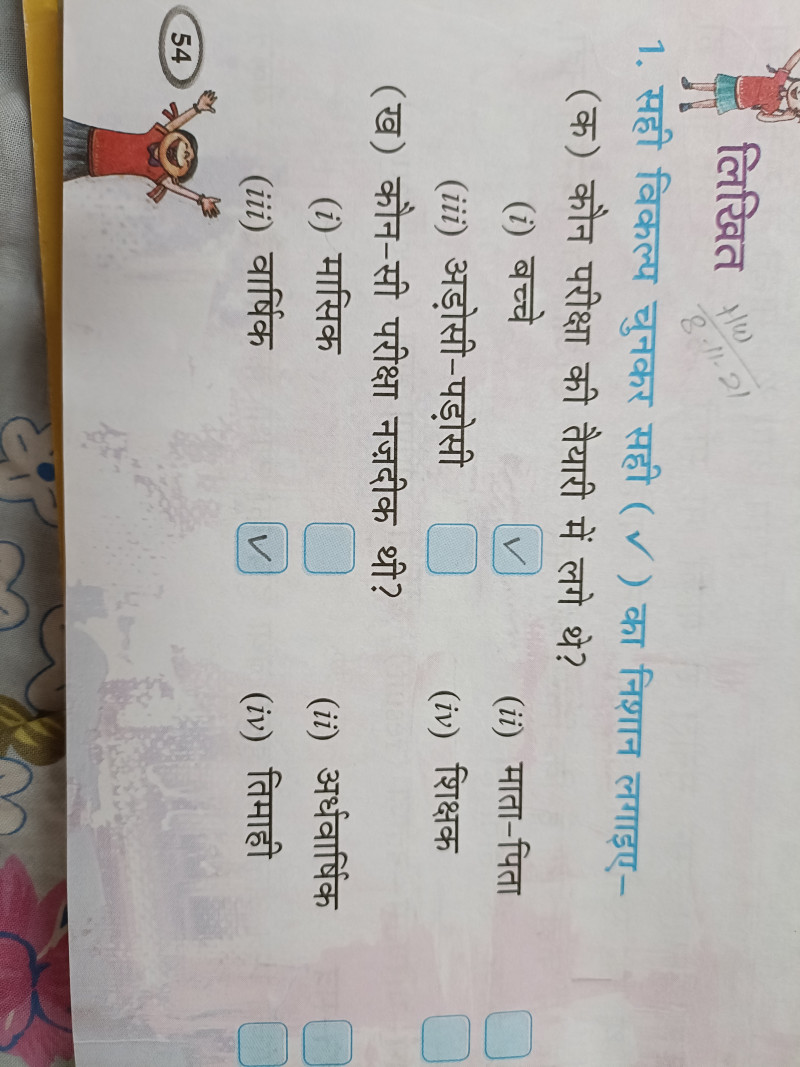 लिखित
H/W
8.11.21
1. सही विकल्प चुनकर सही ( ✓ ) का निशान लगाइए–
(क) कौन परीक्षा की तैयारी में लगे थे?
(i) बच्चे ✓ (ii) माता-पिता
(iii) अड़ोसी-पड़ोसी (iv) शिक्षक
(ख) कौन-सी परीक्षा नज़दीक थी?
(i) मासिक (ii) अर्धवार्षिक
(iii) वार्षिक ✓ (iv) तिमाही
54